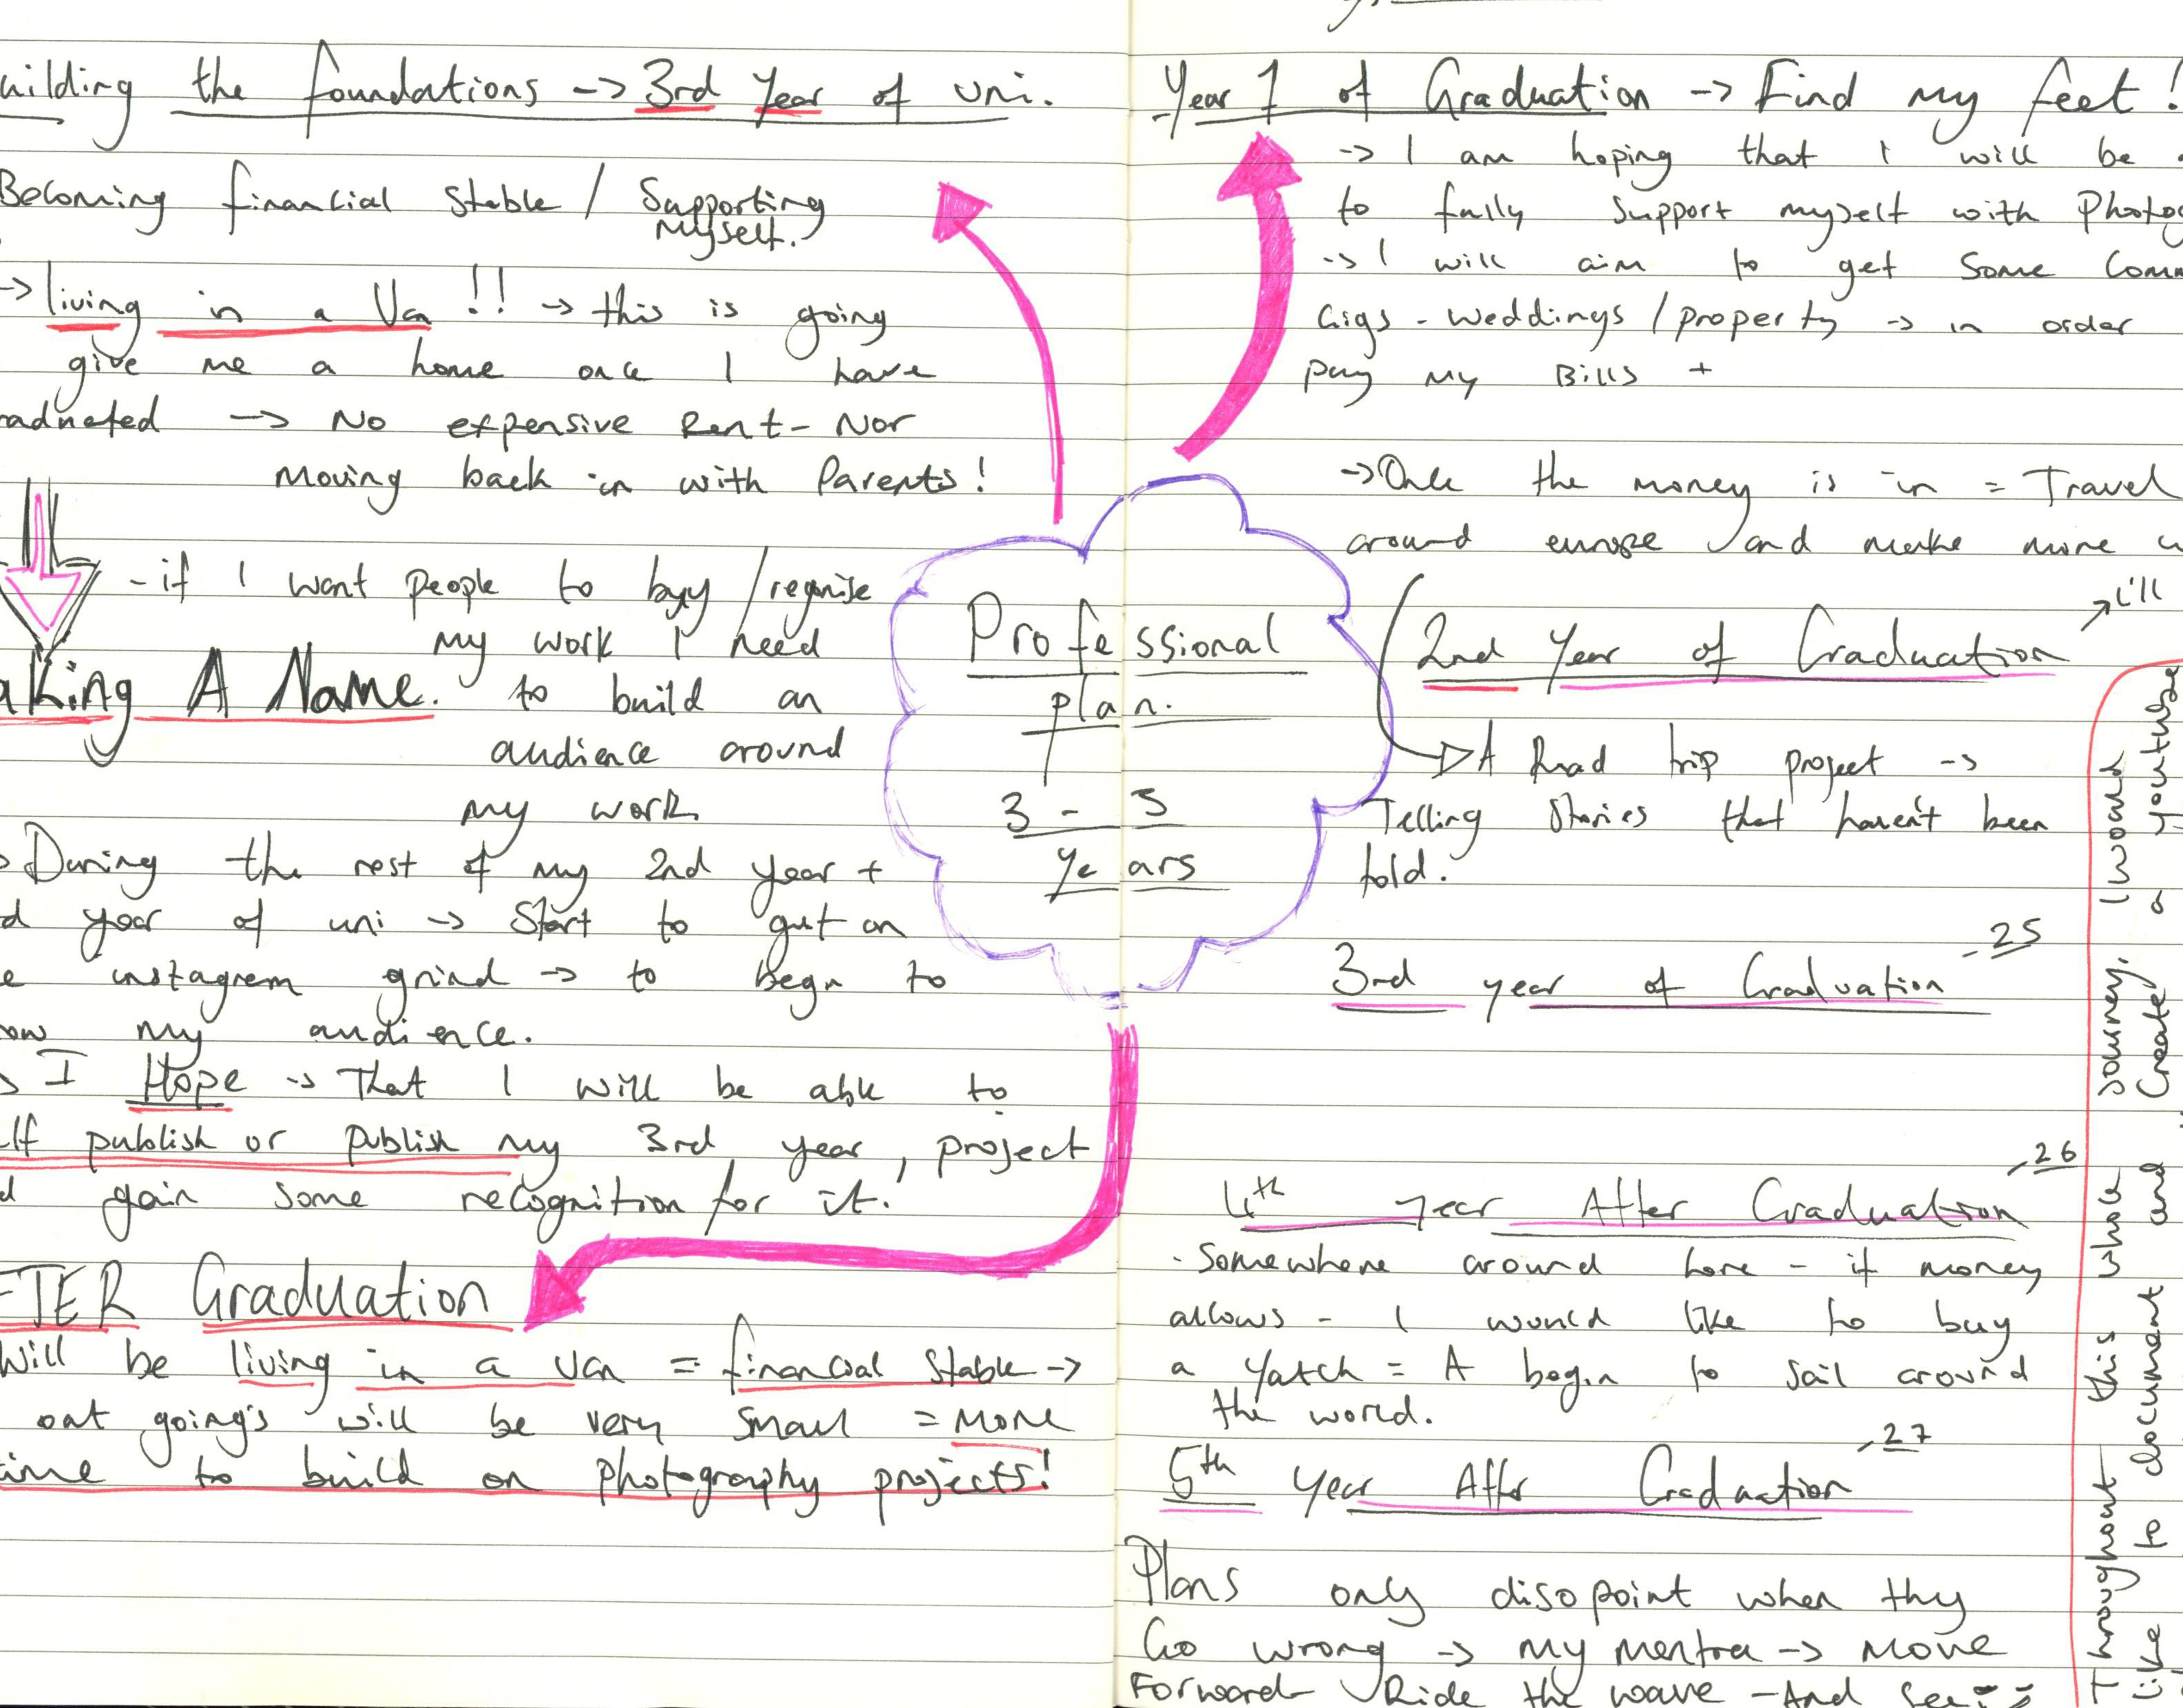 uilding the foundations -> 3rd Year of uni.
Becoming financial stable / Supporting
Myself.
-> living in a Van !! -> this is going
give me a home once I have
raduated -> No expensive Rent - Nor
Moving back in with Parents!
- if I want people to buy / regonise
my work I need
aking A Name. to build an
audience around
my work
During the rest of my 2nd year +
d year of uni -> Start to get on
e instagram grind -> to begin to
ow my audience.
I Hope -> That I will be able to
lf publish or publish my 3rd year, project
d gain some recognition for it.
FTER Graduation
Will be living in a Van = financial stable ->
out going's will be very small = More
time to build on photography projects!
Professional
plan.
3 - 5
Years
Year 1 of Graduation -> Find my feet!
-> I am hoping that I will be
to fully support myself with Photog
-> I will aim to get some Comm
Gigs - weddings / property -> in order
pay my Bills +
-> Once the money is in = Travel
around europe and make more w
I'll
2nd Year of Graduation
A Road trip project ->
Telling Stories that haven't been
told.
3rd year of Graduation - 25
4th year After Graduation - 26
- Somewhere around here - if money
allows - I would like to buy
a Yatch = A begin to sail around
the world.
5th Year After Graduation - 27
Plans only disopoint when thy
Go wrong -> my mentra -> Move
Forward Ride the wave - And see
Throughout this whole journey, I would
like to document and create a youtube